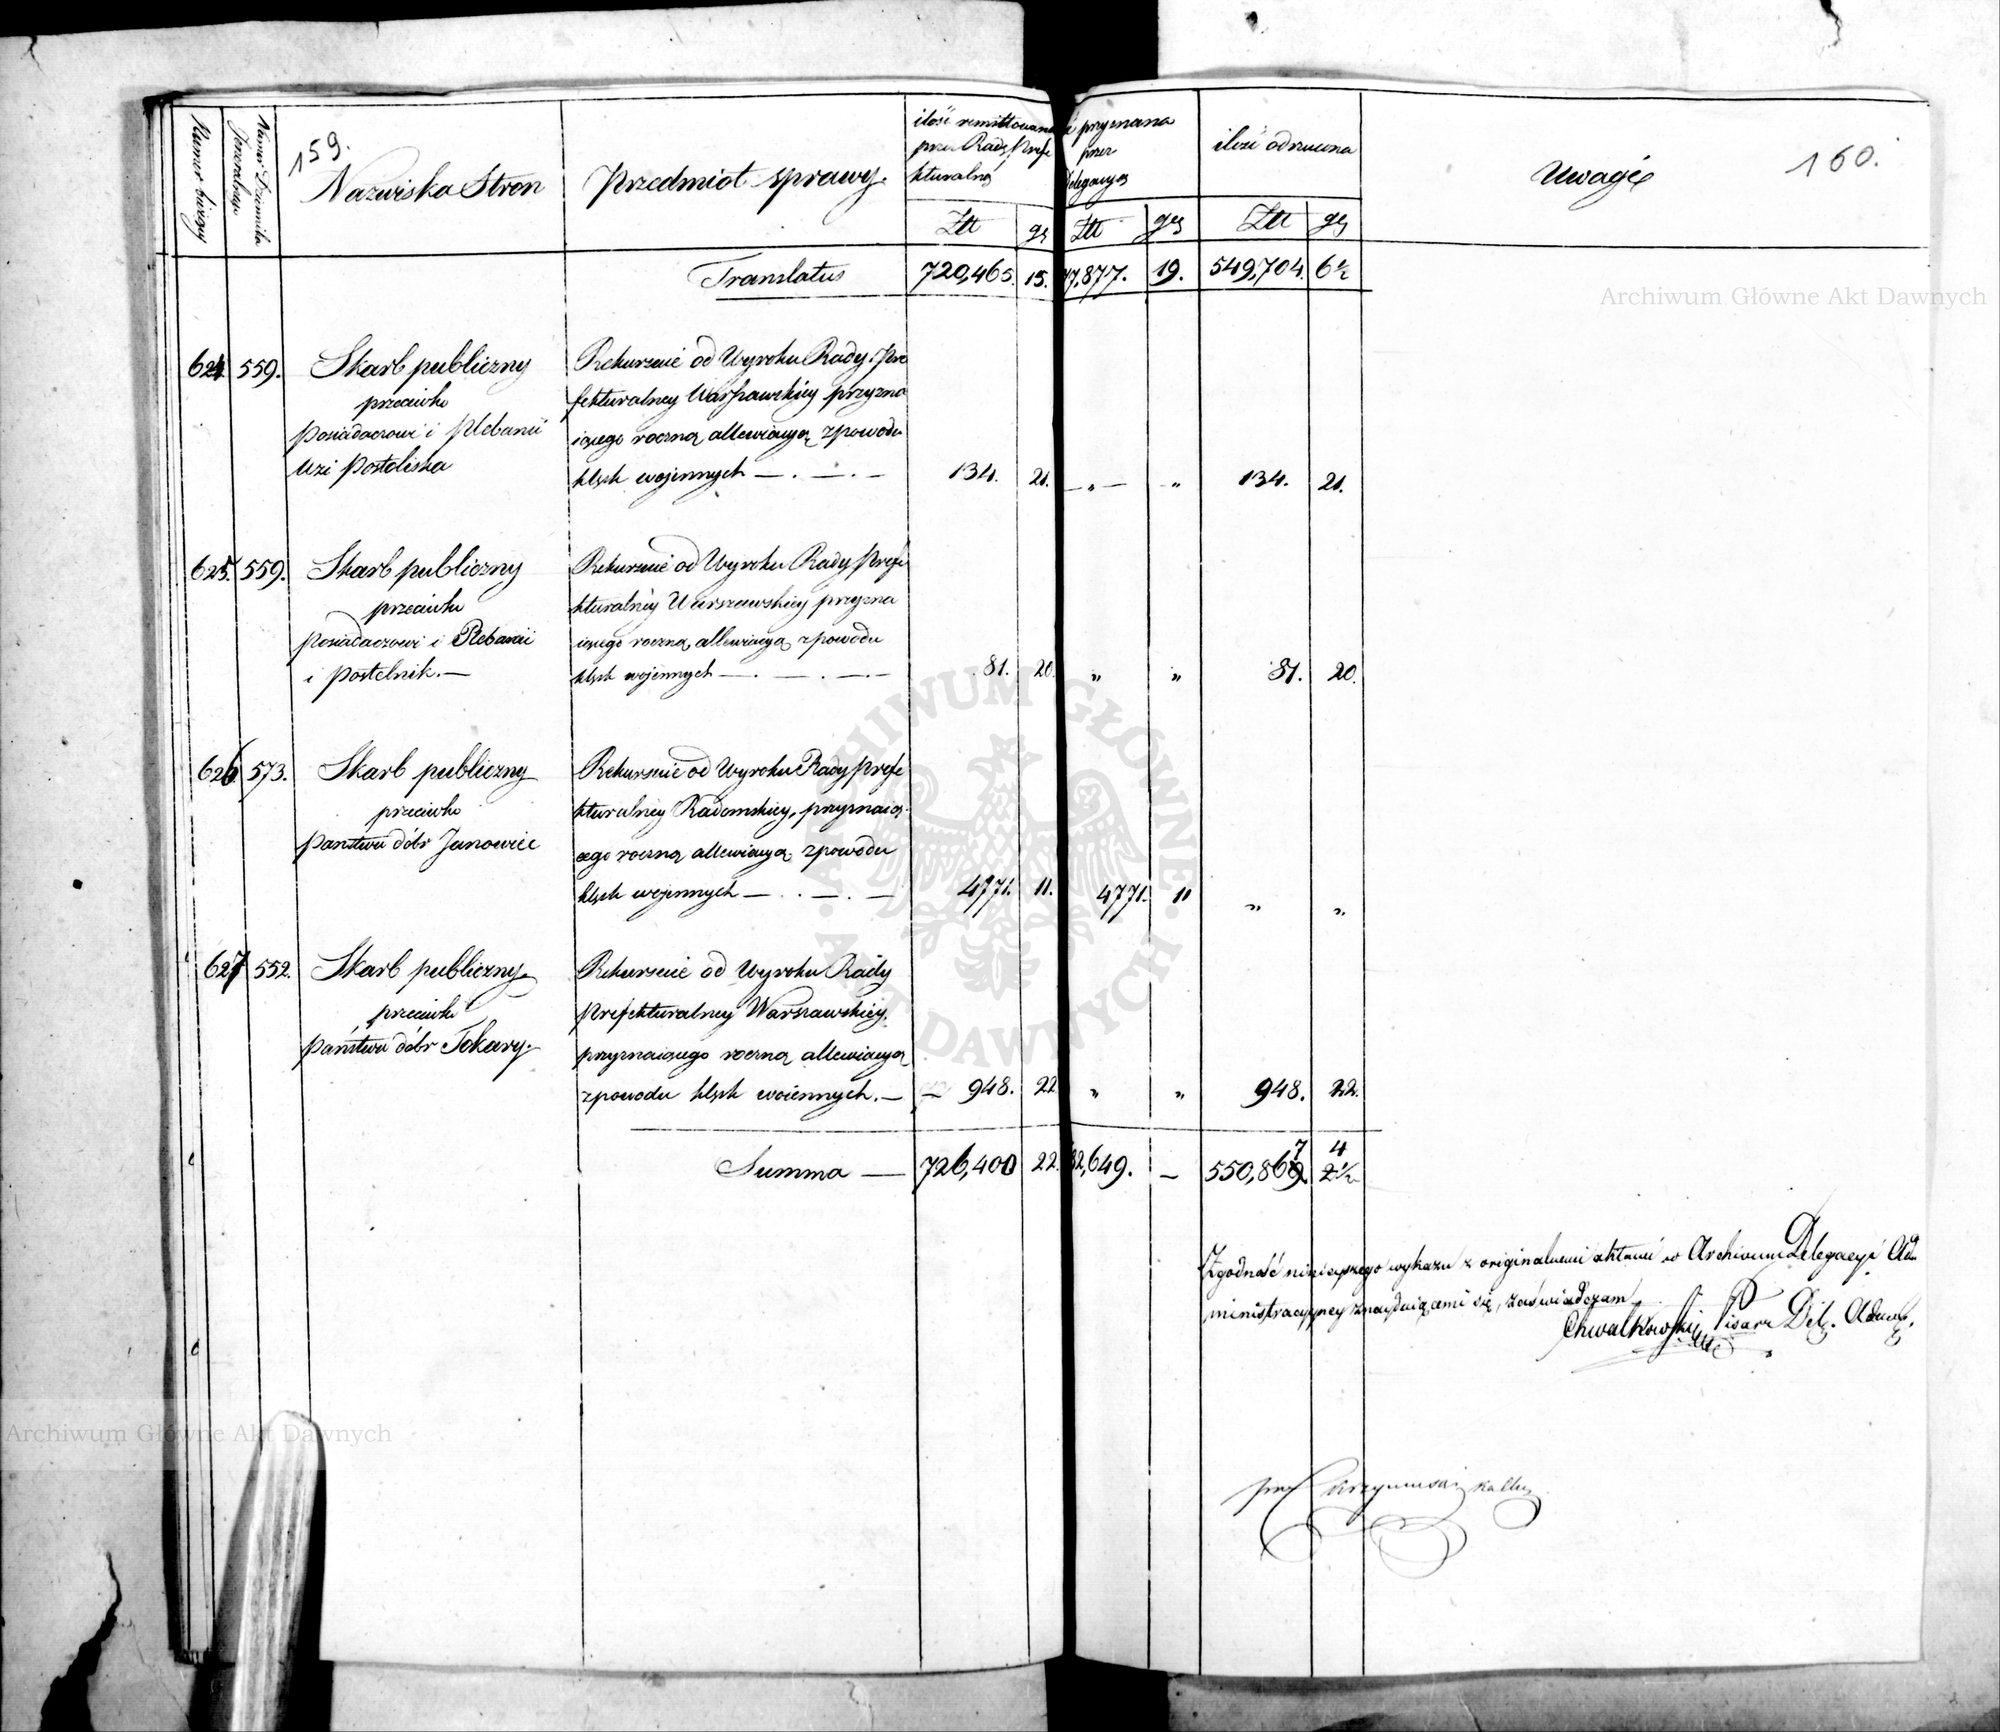 159.
160.
Numer bieżący
Numer Dziennika Jeneralnego
Nazwiska Stron
Przedmiot sprawy.
ilość remittowana
przez Radę Prefe
kturalną
Złt
gr
przyznana
przez
Delegacyą
Złt
gr
ilość odrzucona
Złt
gr
Uwagi
Translatus 720,465. 15. 7,877. 19. 549,704. 6½
624. 559. Skarb publiczny
przeciwko
Posiadaczowi i Plebanii
Uzi Postoliska
Rekursuie od Wyroku Rady Pre
fekturalney Warszawskiey przyzna
iącego roczną allewiacyą z powodu
klęsk wojennych — . — . — 134. 21. — „ — „ 134. 21.
625. 559. Skarb publiczny
przeciwko
Posiadaczowi i Plebanii
i Postelnik. —
Rekursuie od Wyroku Rady Prefe
kturalnéy Warszawskiey przyzna
iącego roczną allewiacyą z powodu
klęsk wojennych — . — . — 81. 20. „ „ 81. 20.
626 573. Skarb publiczny
przeciwko
Państwu dóbr Janowiec
Rekursuie od Wyroku Rady Prefe
kturalney Radomskiey, przyznaią
cego roczną allewiacyą z powodu
klęsk wojennych — . — . — 4771. 11. 4771. 11 „ „
627 552. Skarb publiczny
przeciwko
Państwu dóbr Tokary.
Rekursuie od Wyroku Rady
Prefekturalney Warszawskiey.
przyznaiącego roczną allewiacyą
z powodu klęsk woiennych. — — 948. 22 „ „ 948. 22.
7 4
Summa — 726,400 22. 82,649. — 550,869. 2½
Zgodność ninieyszego wykazu z originalnemi aktami w Archiwum Delegacyi Ad
ministracyyney znayduiącemi się, zaświadczam
Chwalkowski Pisarz Del. Admin.
Archiwum Główne Akt Dawnych
Archiwum Główne Akt Dawnych
ARCHIWUM GŁÓWNE · AKT DAWNYCH ·